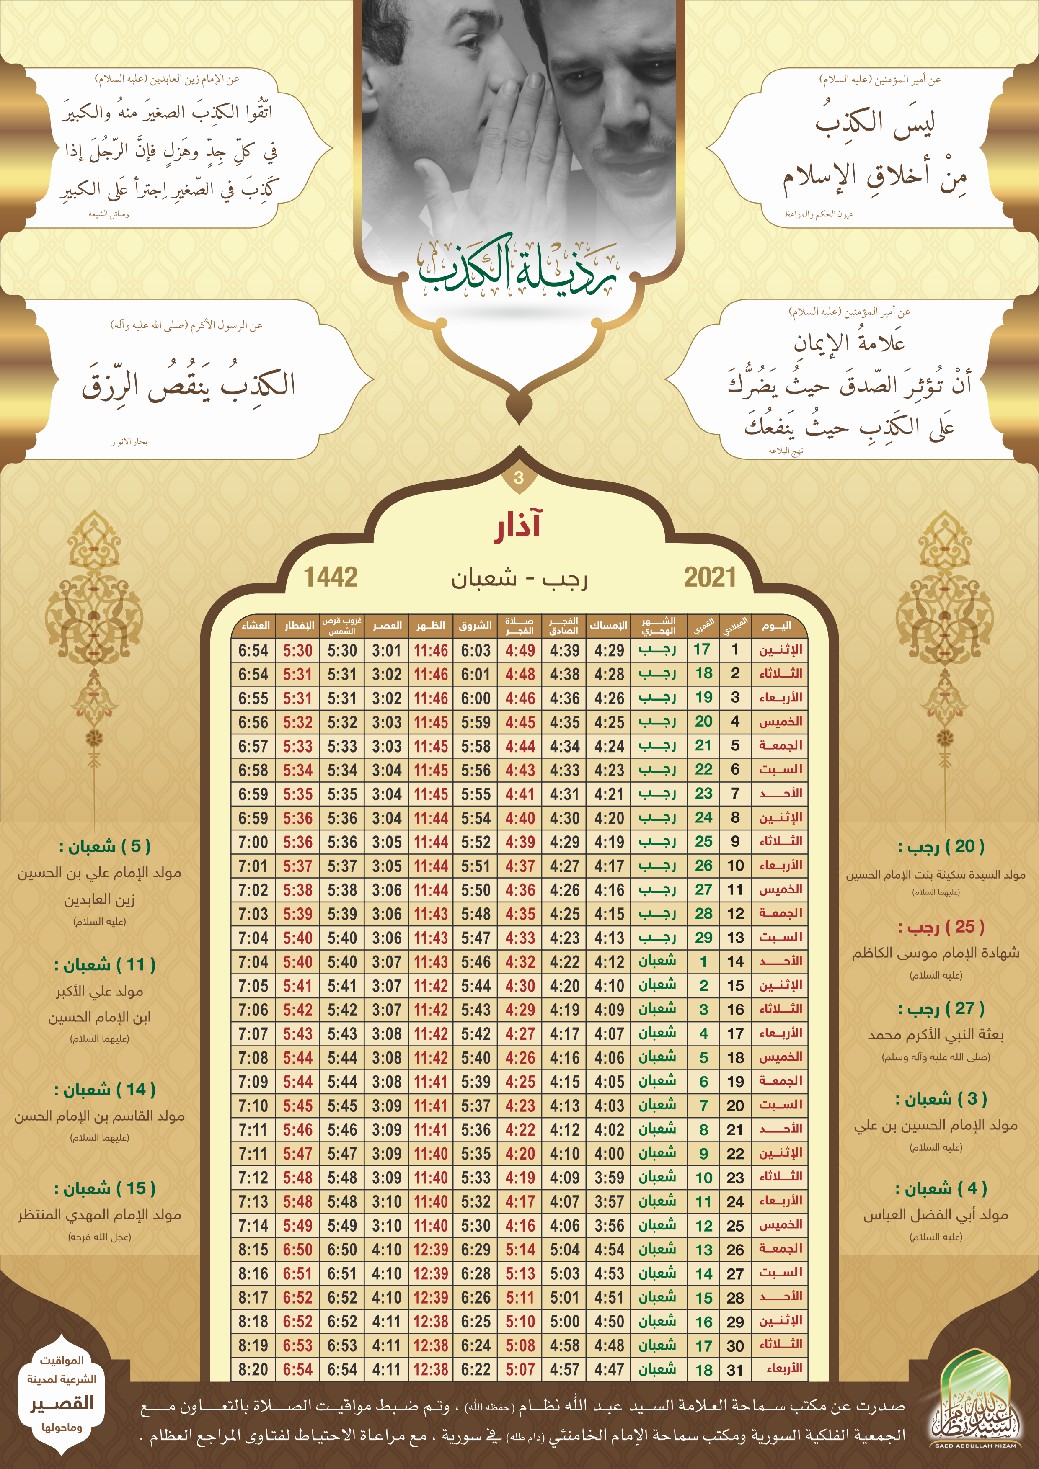 عن أمير المؤمنين (عليه السلام)
ليسَ الكذِبُ
مِنْ أخلاقِ الإسلام
عن الإمام زين العابدين (عليه السلام)
اتّقُوا الكذِبَ الصغيرَ منهُ والكبيرَ
في كلِّ جِدٍّ وهَزلٍ فإنَّ الرّجُلَ إذا
كَذِبَ في الصّغيرِ إجترأ عَلى الكبيرِ
وسائل الشيعة
رذيلة الكذب
عن أمير المؤمنين (عليه السلام)
عَلامةُ الإيمانِ
أنْ تُؤثِرَ الصّدقَ حيثُ يَضُرُّكَ
عَلى الكَذِبِ حيثُ يَنفعُكَ
نهج البلاغة
عن الرسول الأكرم (صلى الله عليه وآله)
الكذِبُ يَنقُصُ الرِّزقَ
بحار الانوار
3
آذار
2021 رجب - شعبان 1442
اليوم الميلادي القمري الشهر الهجري الإمساك الفجر الصادق صلاة الفجر الشروق الظهر العصر غروب قرص الشمس الإفطار العشاء
الإثنين 1 17 رجب 4:29 4:39 4:49 6:03 11:46 3:01 5:30 5:30 6:54
الثلاثاء 2 18 رجب 4:28 4:38 4:48 6:01 11:46 3:02 5:31 5:31 6:54
الأربعاء 3 19 رجب 4:26 4:36 4:46 6:00 11:46 3:02 5:31 5:31 6:55
الخميس 4 20 رجب 4:25 4:35 4:45 5:59 11:45 3:03 5:32 5:32 6:56
الجمعة 5 21 رجب 4:24 4:34 4:44 5:58 11:45 3:03 5:33 5:33 6:57
السبت 6 22 رجب 4:23 4:33 4:43 5:56 11:45 3:04 5:34 5:34 6:58
الأحد 7 23 رجب 4:21 4:31 4:41 5:55 11:45 3:04 5:35 5:35 6:59
الإثنين 8 24 رجب 4:20 4:30 4:40 5:54 11:44 3:04 5:36 5:36 6:59
الثلاثاء 9 25 رجب 4:19 4:29 4:39 5:52 11:44 3:05 5:36 5:36 7:00
الأربعاء 10 26 رجب 4:17 4:27 4:37 5:51 11:44 3:05 5:37 5:37 7:01
الخميس 11 27 رجب 4:16 4:26 4:36 5:50 11:44 3:06 5:38 5:38 7:02
الجمعة 12 28 رجب 4:15 4:25 4:35 5:48 11:43 3:06 5:39 5:39 7:03
السبت 13 29 رجب 4:13 4:23 4:33 5:47 11:43 3:06 5:40 5:40 7:04
الأحد 14 1 شعبان 4:12 4:22 4:32 5:46 11:43 3:07 5:40 5:40 7:04
الإثنين 15 2 شعبان 4:10 4:20 4:30 5:44 11:42 3:07 5:41 5:41 7:05
الثلاثاء 16 3 شعبان 4:09 4:19 4:29 5:43 11:42 3:07 5:42 5:42 7:06
الأربعاء 17 4 شعبان 4:07 4:17 4:27 5:42 11:42 3:08 5:43 5:43 7:07
الخميس 18 5 شعبان 4:06 4:16 4:26 5:40 11:42 3:08 5:44 5:44 7:08
الجمعة 19 6 شعبان 4:05 4:15 4:25 5:39 11:41 3:08 5:44 5:44 7:09
السبت 20 7 شعبان 4:03 4:13 4:23 5:37 11:41 3:09 5:45 5:45 7:10
الأحد 21 8 شعبان 4:02 4:12 4:22 5:36 11:41 3:09 5:46 5:46 7:11
الإثنين 22 9 شعبان 4:00 4:10 4:20 5:35 11:40 3:09 5:47 5:47 7:11
الثلاثاء 23 10 شعبان 3:59 4:09 4:19 5:33 11:40 3:09 5:48 5:48 7:12
الأربعاء 24 11 شعبان 3:57 4:07 4:17 5:32 11:40 3:10 5:48 5:48 7:13
الخميس 25 12 شعبان 3:56 4:06 4:16 5:30 11:40 3:10 5:49 5:49 7:14
الجمعة 26 13 شعبان 4:54 5:04 5:14 6:29 12:39 4:10 6:50 6:50 8:15
السبت 27 14 شعبان 4:53 5:03 5:13 6:28 12:39 4:10 6:51 6:51 8:16
الأحد 28 15 شعبان 4:51 5:01 5:11 6:26 12:39 4:10 6:52 6:52 8:17
الإثنين 29 16 شعبان 4:50 5:00 5:10 6:25 12:38 4:11 6:52 6:52 8:18
الثلاثاء 30 17 شعبان 4:48 4:58 5:08 6:24 12:38 4:11 6:53 6:53 8:19
الأربعاء 31 18 شعبان 4:47 4:57 5:07 6:22 12:38 4:11 6:54 6:54 8:20
( 20 ) رجب :
مولد السيدة سكينة بنت الإمام الحسين
(عليهما السلام)
( 25 ) رجب :
شهادة الإمام موسى الكاظم
(عليه السلام)
( 27 ) رجب :
بعثة النبي الأكرم محمد
(صلى الله عليه وآله وسلم)
( 3 ) شعبان :
مولد الإمام الحسين بن علي
(عليه السلام)
( 4 ) شعبان :
مولد أبي الفضل العباس
(عليه السلام)
( 5 ) شعبان :
مولد الإمام علي بن الحسين
زين العابدين
(عليه السلام)
( 11 ) شعبان :
مولد علي الأكبر
ابن الإمام الحسين
(عليهما السلام)
( 14 ) شعبان :
مولد القاسم بن الإمام الحسن
(عليهما السلام)
( 15 ) شعبان :
مولد الإمام المهدي المنتظر
(عجل الله فرجه)
صدرت عن مكتب سماحة العلامة السيد عبد الله نظام (حفظه الله) ، وتم ضبط مواقيت الصلاة بالتعاون مع
الجمعية الفلكية السورية ومكتب سماحة الإمام الخامنئي (دام ظله) في سورية ، مع مراعاة الاحتياط لفتاوى المراجع العظام .
المواقيت
الشرعية لمدينة
القصير
وماحولها
SAED ABDULLAH NIZAM